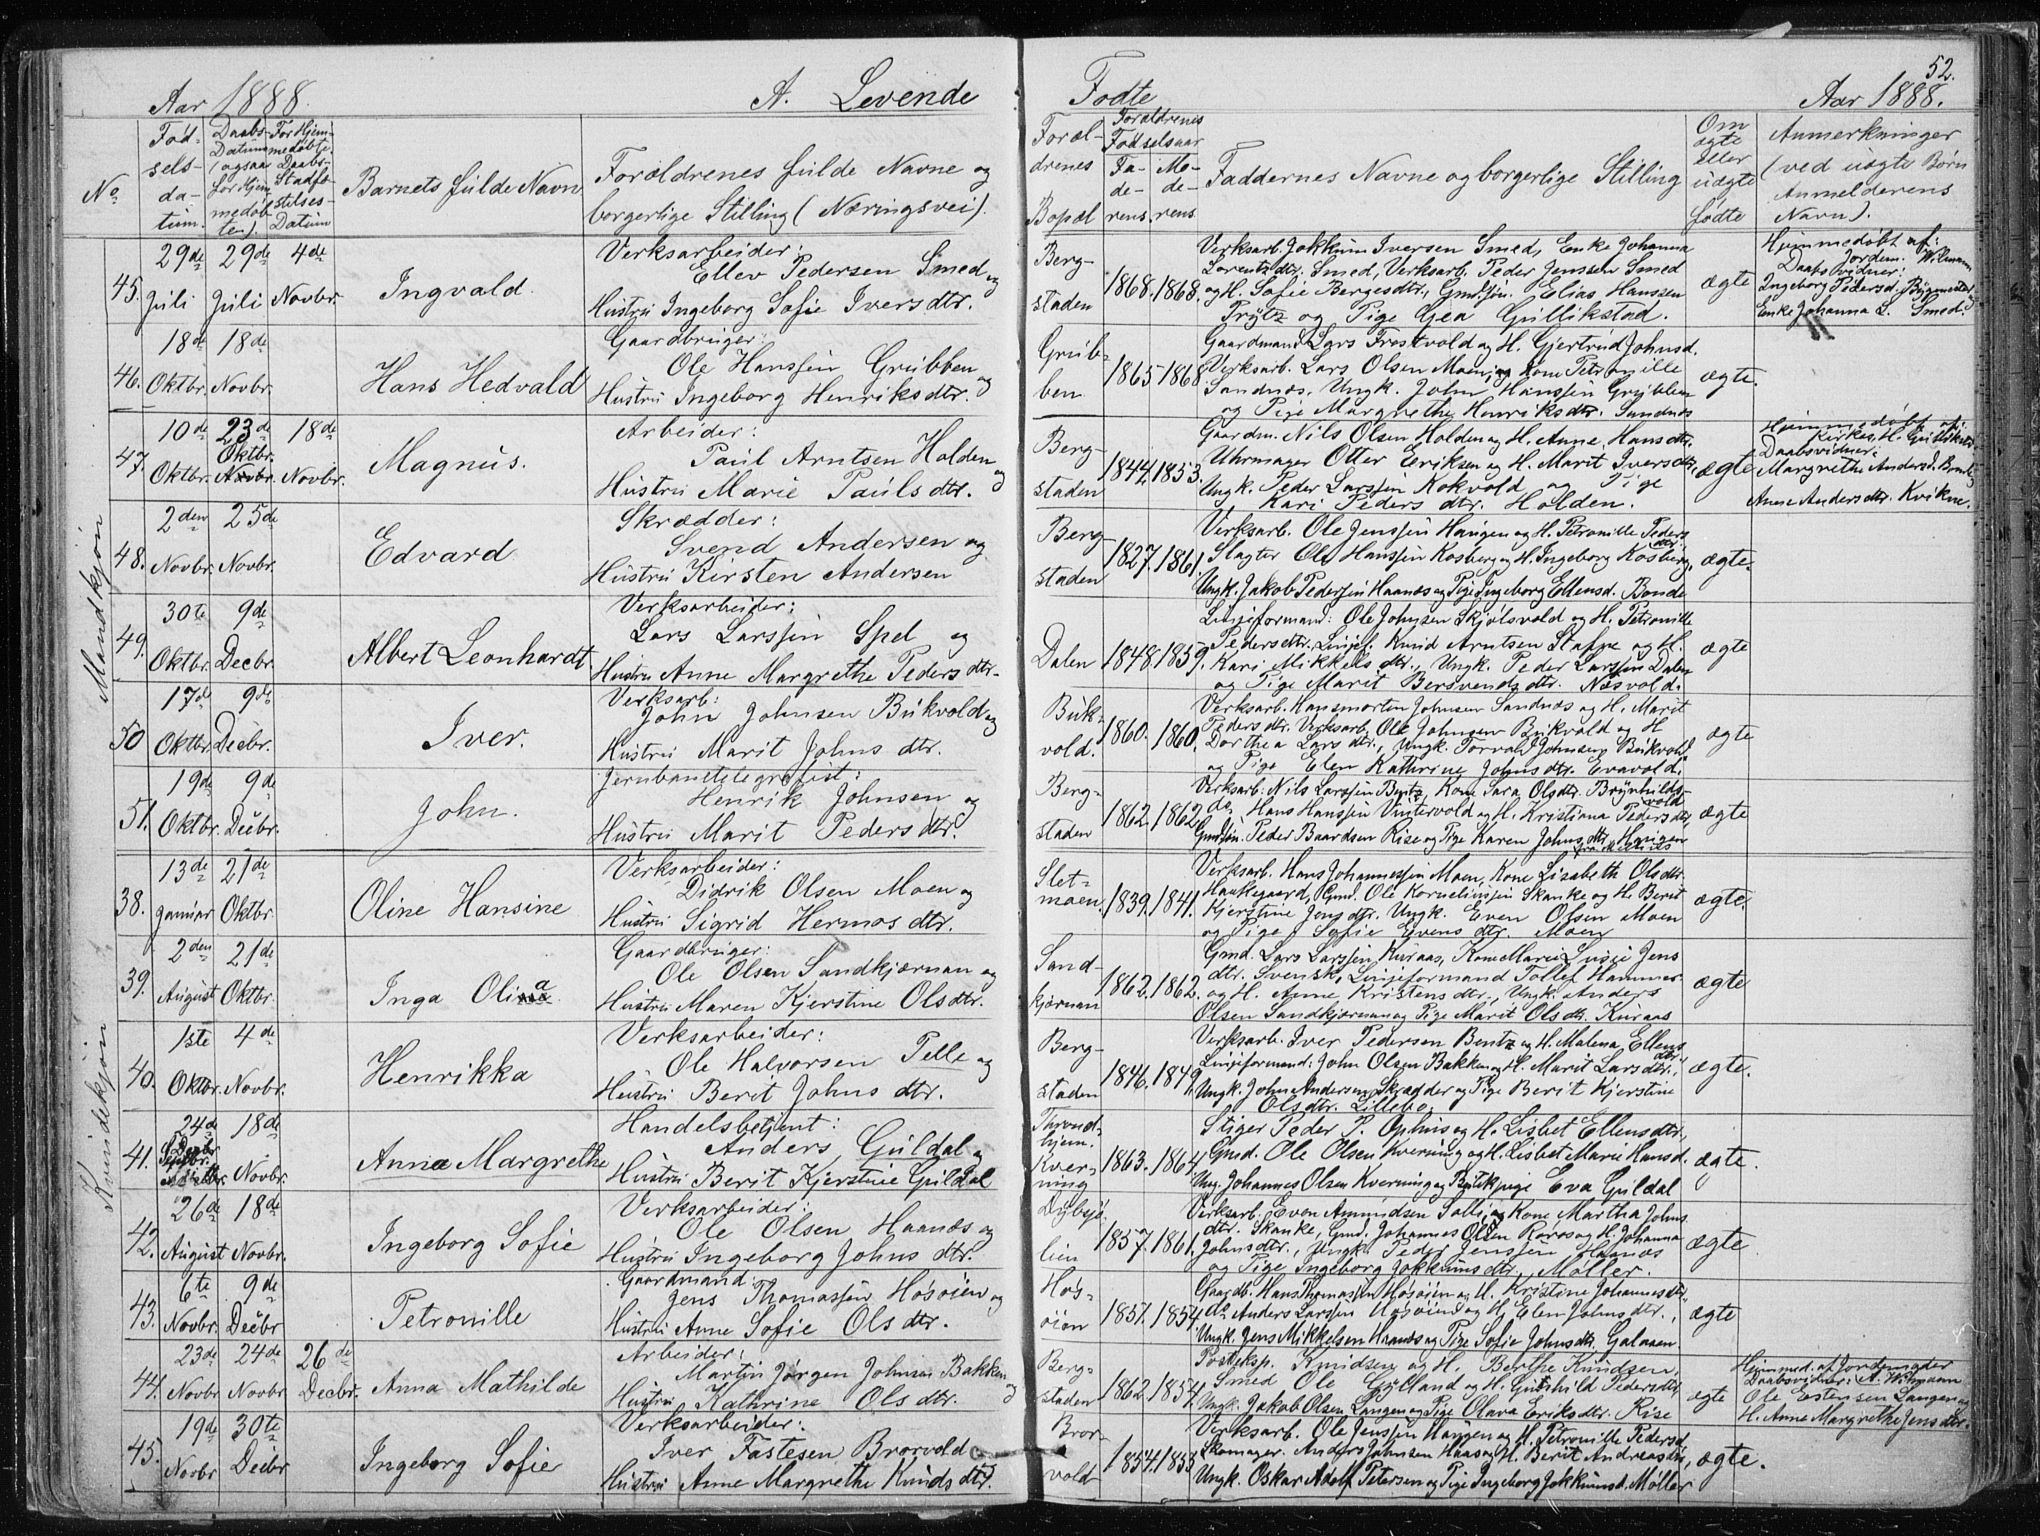 52.
Aar 1888.
A. Levende
Fødte
Aar 1888.
No.
Fød-
sels-
da-
tum.
Daabs-
Datum
(ogsaa
for Hjem-
medøb-
te).
For Hjem-
medøbte:
Daabs-
Stadfæ-
stelses-
Datum
Barnets fulde Navn
Forældrenes fulde Navne og
borgerlige Stilling (Næringsvei).
Foræl-
drenes
Bopæl
Forældrenes
Fødselsaar
Fa-
de-
rens.
Mo-
de-
rens
Faddernes Navne og borgerlige Stilling
Om
ægte
eller
uægte
fødte
Anmerkninger
(ved uægte Børn
Anmelderens
Navn).
Mandkjøn
45.
29de
Juli
29de
Juli
4de
Novbr.
Ingvald.
Verksarbeider:
Ellev Pedersen Smed og
Hustru Ingeborg Sofie Iversdtr.
Berg-
staden
1868.
1868.
Verksarb. Jokkum Iversen Smed, Enke Johanna
Lorentsdtr. Smed, Verksarb. Peder Jenssen Smed
og H. Sofie Bergesdtr., Gmd.søn. Elias Hanssen
Prytz og Pige Gea Gullikstad.
ægte
Hjemmedøbt af:
Jordem. Wilmann
Daabsvidner:
Ingeborg Pedersd. Bygmester
Enke Johanna L. Smed.
46.
18de
Oktbr.
18de
Novbr.
Hans Hedvald
Gaardbruger:
Ole Hanssen Grubben og
Hustru Ingeborg Henriksdtr.
Grub-
ben
1865
1868
Gaardmand Lars Trostvold og H. Gjertrud Johnsd.
Verksarb. Lars Olsen Moen, og Kone Petronille
Sandnæs. Ungk. John Hanssen Grubben
og Pige Margrethe Henriksdtr. Sandnæs
ægte.
47.
10de
Oktbr.
23de
Oktbr.
Novbr.
18de
Novbr.
Magnus.
Arbeider:
Paul Arntsen Holden og
Hustru Marie Paulsdtr.
Berg-
staden
1844.
1853.
Gaardm. Nils Olsen Holden og H. Anne Hansdtr.
Uhrmager Otter Eriksen og H. Marit Iversdtr.
Ungk. Peder Larssen Kokvold og Pige
Kari Pedersdtr. Holden.
ægte
Hjemmedøbt af:
Kirkes. H. Gullikstad
Daabsvidner.
Margrethe Andersd.
Anne Andersdtr. Kvikne.
48.
2den
Novbr.
25de
Novbr.
Edvard
Skrædder:
Svend Andersen og
Hustru Kirsten Andersen
Berg-
staden
1827.
1861.
Verksarb. Ole Jenssen Haugen og H. Petronille Peders
dtr.
Slagter Ole Hanssen Kosberg og H. Ingeborg Kosberg,
Ungk. Jakob Pederssen Haanæs og Pige Ingeborg Ellensd. Bonde
ægte.
49.
30te
Oktbr.
9de
Decbr.
Albert Leonhardt.
Verksarbeider:
Lars Larssen Spel og
Hustru Anne Margrethe Pedersdtr.
Dalen
1848.
1859.
Linjeformand: Ole Johnsen Skjølsvold og H. Petronille
Pedersdtr. Linjef. Knud Arntsen Stafne og H.
Kari Mikkelsdtr., Ungk. Peder Larssen Dalen
og Pige Marit Bersvendsdtr. Næsvold.
ægte
50
17de
Oktbr.
9de
Decbr.
Iver.
Verksarb:
John Johnsen Bukvold og
Hustru Marit Johnsdtr.
Buk-
vold.
1860.
1860.
Verksarb. Hansmorten Johnsen Sandnæs og H. Marit
Pedersdtr. Verksarb. Ole Johnsen Bukvold og H
Dorthea Larsdtr., Ungk. Torvald Johnsen Bukvold
og Pige Elen Kathrine Johnsdtr. Evavold.
ægte
51.
19de
Oktbr.
9de
Decbr.
John.
Jernbanetelegrafist:
Henrik Johnsen og
Hustru Marit Pedersdtr.
Berg-
staden
1862.
1862
Verksarb: Nils Larssen Bentz, Kone Sara Olsdtr. Brynhilds-
vold
do Hans Hanssen Vintervold og H. Kristiana Pedersdtr,
Gmdsøn. Peder Baardsen Rise og Pige Karen Johnsdtr. Haugen
ægte
Kvindekjøn
38.
13de
Januar
21de
Oktbr.
Oline Hansine
Verksarbeider:
Didrik Olsen Moen og
Hustru Sigrid Hermosdtr.
Slet-
moen.
1839.
1841.
Verksarb. Hans Johannessen Moen, Kone Lisabeth Olsdtr.
Haukegaard, Gmd. Ole Korneliussen Skanke og H. Berit
Kjerstine Jonsdtr. Ungk. Even Olsen Moen
og Pige Sofie Evensdtr. Moen
ægte.
39.
2den
August
21de
Oktbr.
Inga Olina
Gaardbruger:
Ole Olsen Sandkjærnan og
Hustru Maren Kjerstine Olsdtr.
Sand-
kjærnan
1862.
1862.
Gmd. Lars Larssen Kuraas, Kone Marie Lusie Jens
dtr. Svensk, Linjeformand Tollef Hammer
og H. Anne Kristensdtr., Ungk. Anders
Olsen Sandkjærnan og Pige Marit Olsdtr. Kuraas
ægte
40.
1ste
Oktbr.
4de
Novbr.
Henrikka
Verksarbeider:
Ole Halvorsen Pelle og
Hustru Berit Johnsdtr.
Berg-
staden
1846.
1849.
Verksarb. Iver Pedersen Bentz og H. Malena Ellens
dtr.
Linjeformand: John Olsen Bakken og H. Marit Larsdtr.,
Ungk. John Andersen Skrædder og Pige Berit Kjerstine
Olsdtr. Lillebo.
ægte.
41.
24de
18de
Novbr.
Anna Margrethe
Handelsbetjent:
Anders Guldal og
Hustru Berit Kjerstine Guldal
Thrond-
hjem.
Kver-
ning
1863.
1864
Stiger Peder P. Ophus og H. Lisbet Ellensdtr.,
Gmd. Ole Olsen Kverning og H. Lisbet Marie Hansd.
Ung. Johannes Olsen Kverning og Butikpige Eva Guldal
ægte.
42.
26de
August
18de
Novbr.
Ingeborg Sofie
Verksarbeider:
Ole Olsen Haanæs og
Hustru Ingeborg Johnsdtr.
Dybsjø
lien
1857.
1861.
Verksarb. Even Amundsen Solli, og Kone Martha Johns
dtr. Skanke, Gmd. Johannes Olsen Røros og H. Johanna
Johnsdtr., Ungk. Peder Jenssen Haanæs
og Pige Ingeborg Jokkumsdtr. Møller.
ægte
43.
6te
Novbr.
9de
Decbr
Petronille
Gaardmand:
Jens Thomassen Høsøien og
Hustru Anne Sofie Olsdtr.
Høs-
øien
1851.
1854.
Gaardb. Hans Thomassen Høsøien og H. Kristine Johannesdtr.
do Anders Larssen Høsøien og H. Elen Johnsdtr.,
Ungk. Jens Mikkelsen Haanæs og Pige Sofie Johnsdtr. Galaaen.
ægte
44.
23de
Novbr
24de
Novbr
26de
Decbr.
Anna Mathilde
Arbeider:
Martin Jørgen Johnsen Bakken og
Hustru Kathrine Olsdtr.
Berg-
staden
1862
1854
Posteksp. Knudsen og H. Berthe Knudsen.
Smed Ole Gylland og H. Gunhild Pedersdtr
Ungk. Jakob Olsen Langen og Pige Olava Eriksdtr. Rise
ægte
Hjemmed. af Jordemoder
Daabsvidner: A. Wilmann
Ole Estensen Langen og
H. Anne Margrethe Jensdtr.
45.
19de
Novbr
30te
Decbr
Ingeborg Sofie
Verksarbeider:
Iver Fastesen Brorvold
Hustru Anne Margrethe Knudsdtr.
Bror-
vold
1854.
1853
Verksarb. Ole Jenssen Haugen og H. Petronille Pedersd
Skomager. Anders Johnsen Haas og H. Berit Andreasdtr,
Ungk. Oskar Adolf Petersen og Pige Ingeborg Jokkumsd. Møller
ægte.